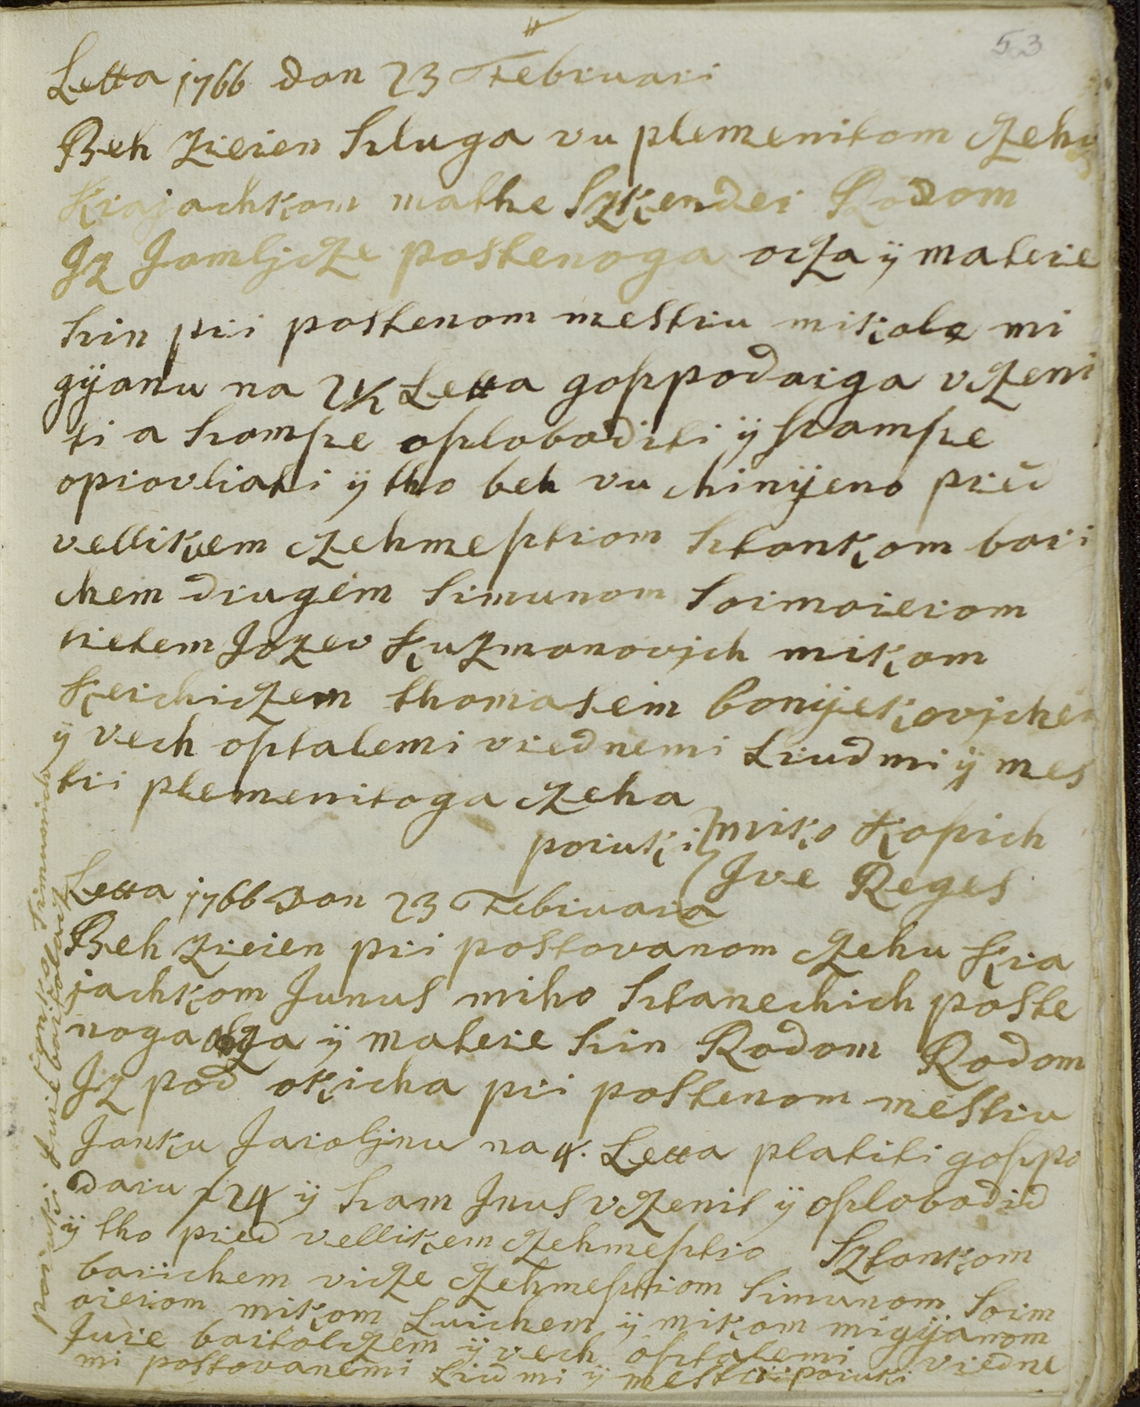 53
Letta 1766 dan 23 Februari
Beh zreren szluga vu plemenitom czehu
krajachkom mathe Szkender Rodom
Iz Jamljcze postenoga ocza ÿ matere
szin pri postenom mestru mikole mi
gÿanu na 2½ Letta goszpodarga vczeni
ti a szamsze oszloboditi ÿ szamsze
opravliati ÿ tho beh vu chinÿeno pred
vellikem czehmestrom Sztankom bari
chem drugem Simunom Soimarerom
tretem Jozev Kuzmanovich mikom
Kerchiczem thomasem bonÿekovichem
ÿ vech osztalemi vrednemi Liudmi ÿ mes
tri plemenitoga czeha
poruki miko Kopich
Ive Reges
Letta 1766 Dan 23 Februara
Beh zreren pri postovanom czehu kra
jachkom Junus miho Sztanechich poste
noga ocza ÿ matere szin Rodom Rodom
Iz pod okicha pri postenom mestru
Janku Jaroljnu na 4. Letta platiti goszpo
daru f 24 ÿ szam Inus vczenit ÿ oszlobodid
ÿ tho pred vellikem czehmestro Sztankom
barichem vicze czehmestrom Simunom Soim
arerom mikom Lurichem ÿ mikom migÿanom
Jure bartolczem ÿ vech osztalemi vredne
mi postovanemi Liudmi ÿ mestri poruki
poruki Jure bartolacz
ÿ Janko Simunich